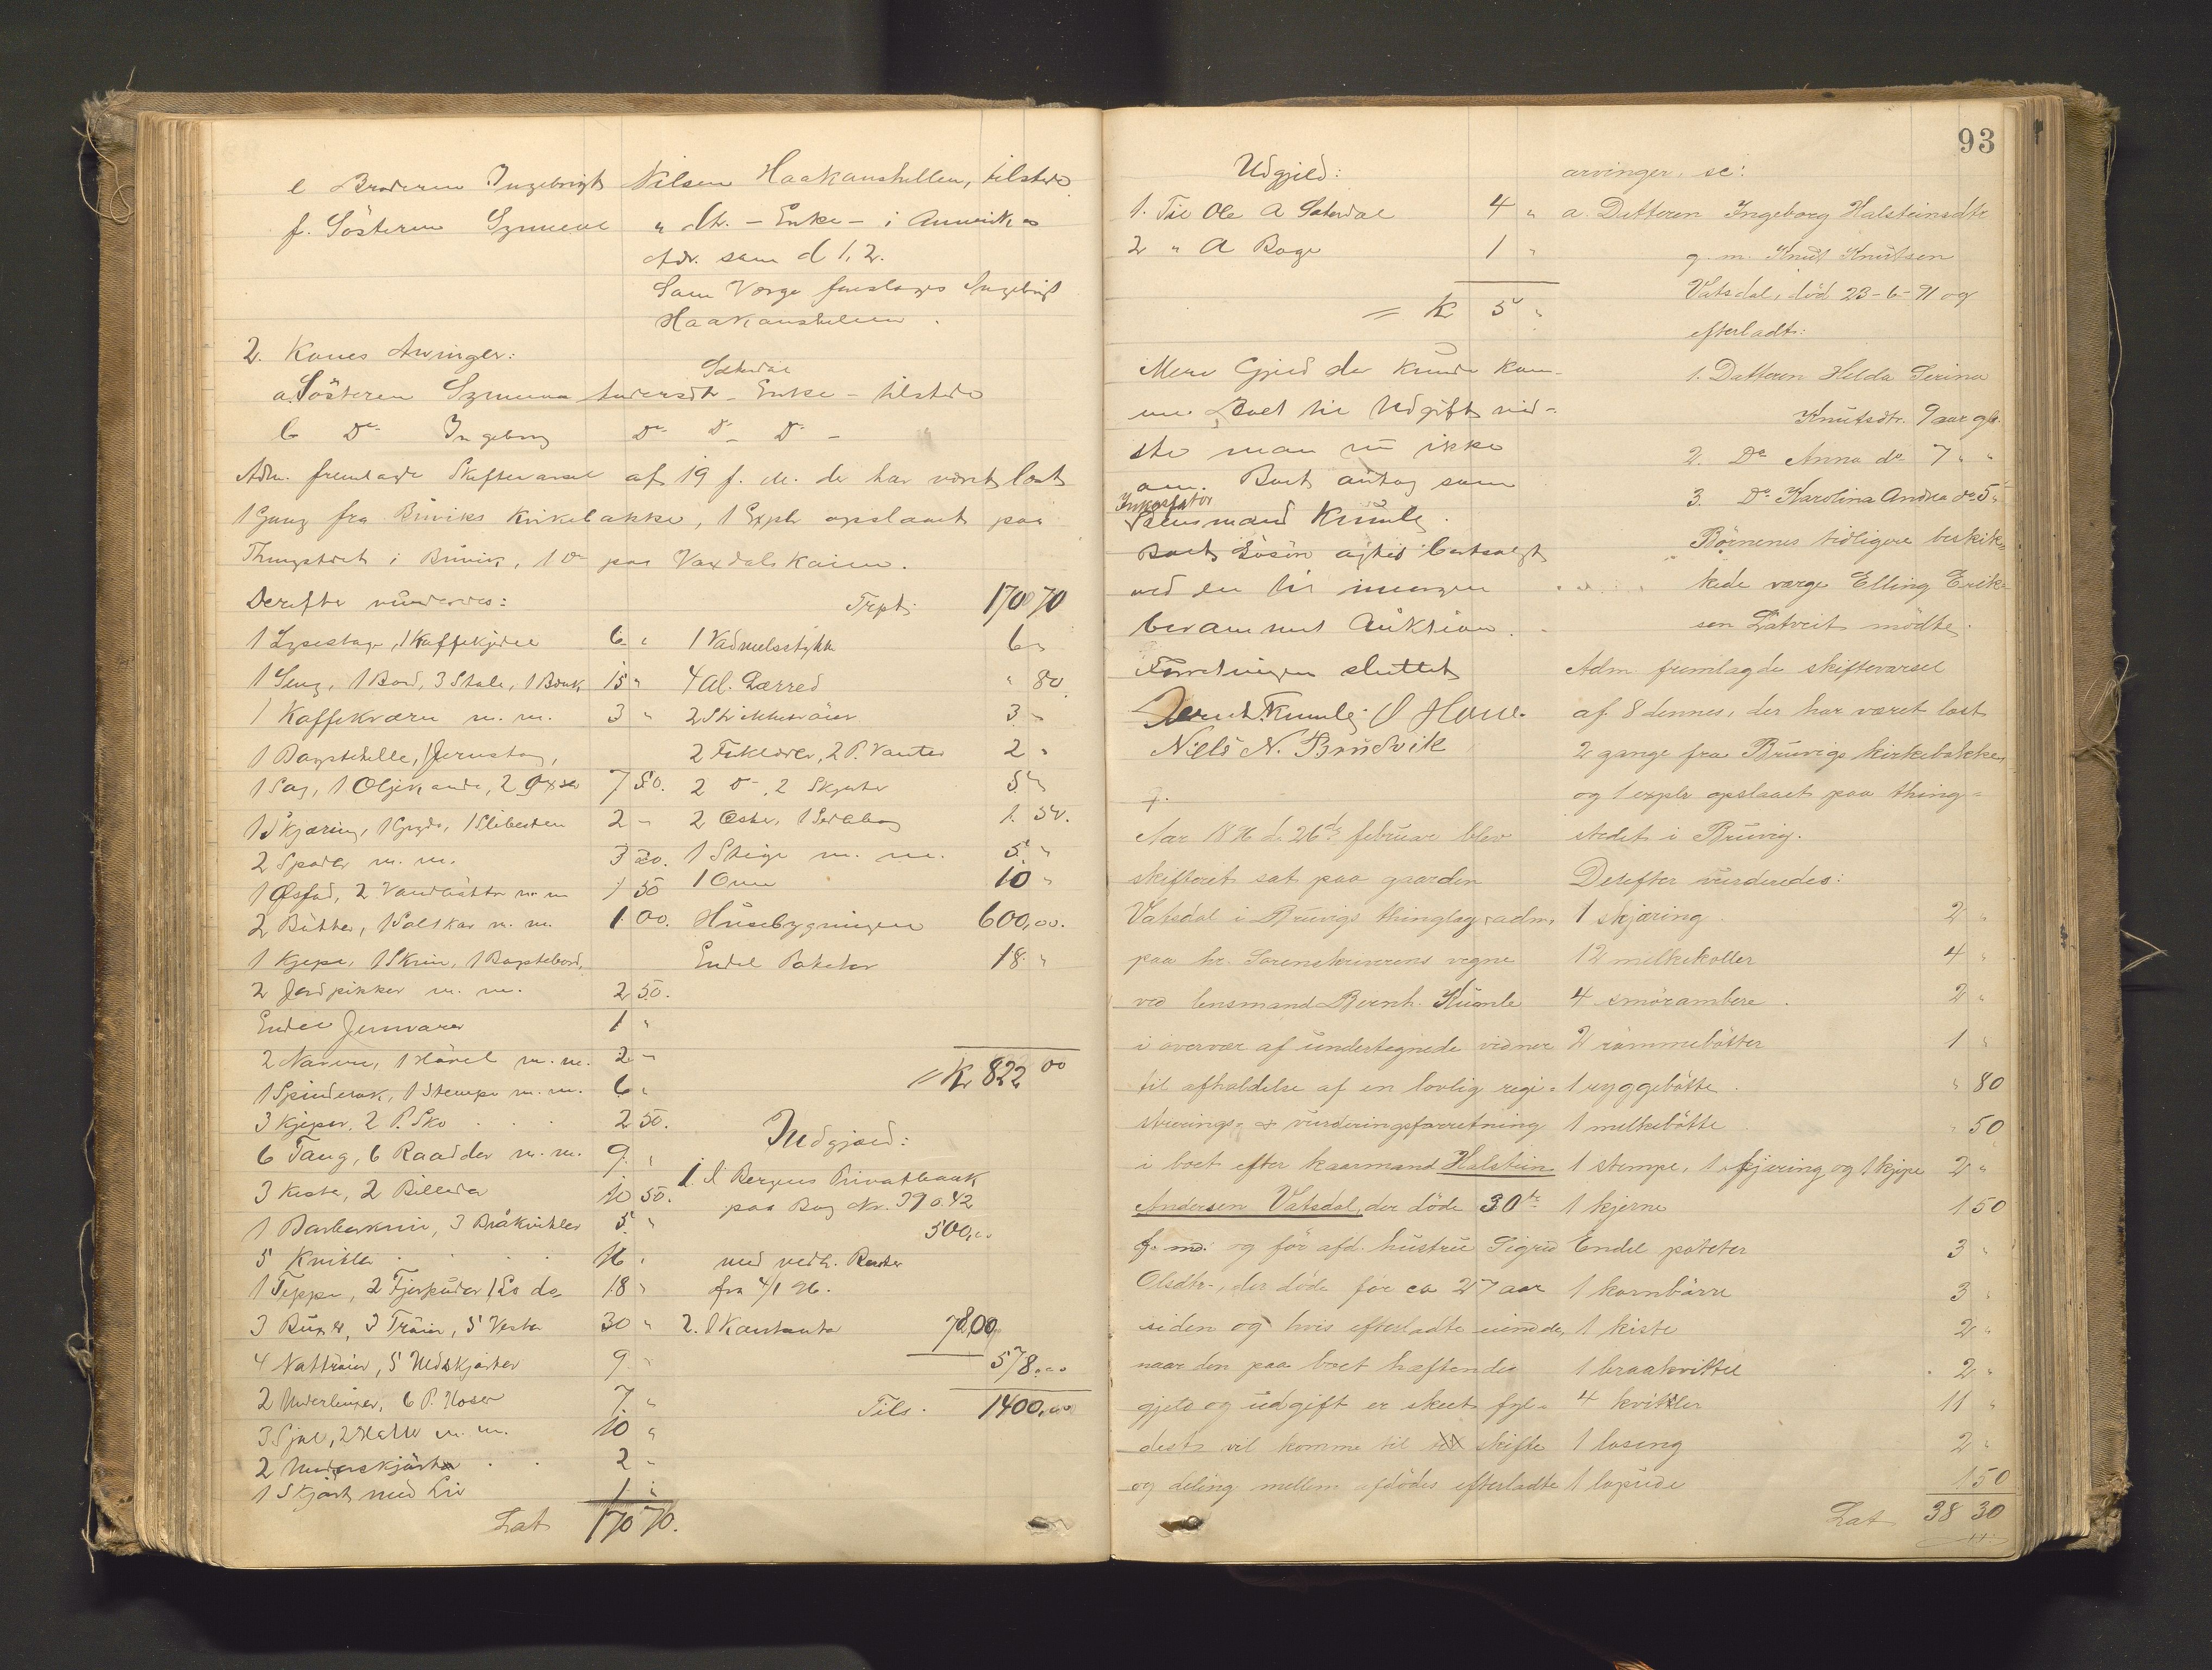 e Broderen Ingebrigt Nilsen Haakanshellen, tilstede
f. Søsteren Synneve " dtr. - Enke - i Amerika
Adr. som d 1, 2.
Som Verge foreslages Ingebrigt
Haakanshellen.
2. Kones Arvinger:
Sæterdal
a. Søsteren Synneva Andersdtr - Enke - tilstede
b Do Ingeborg Do Do - Do -
Adm. fremlagde Skiftevarsel af 19 f. M. der har været læst
1 Gang fra Bruviks Kirkebakke, 1 Expl. opslaaet paa
Thingstedet i Bruvik, 1 do paa Vaxdals Kaien.
Derefter vurderedes:
1 Lysestage, 1 Kaffekjedel 6 "
1 Seng, 1 Bord, 3 Stole, 1 Bænk 15 "
1 Kaffekværn m. m. 3 "
1 Bagstehelle, 1 Jernstang,
1 Sag, 1 Oljekande, 2 Øxer 7 50.
1 Skjæring, 1 Gryde, 1 Slibesten 2 -
2 Spader m. m. 3 20.
1 Øsfad, 2 Vandbøtter m. m 1 50
2 Bøtter, 1 Saltkar m. m. 1 00.
1 Kjepe, 1 Skrin, 1 Bagstebord,
2 Jordpikker m. m. 2 50.
Endel Jernvarer 1 "
2 Navere, 1 Høvel m. m. 2 -
1 Spinderok, 1 Stampe m. m. 6 "
3 Kjeper, 2 P. Sko 2 50.
6 Taug, 6 Raadder m. m. 9 "
3 Kister, 2 Billeder 10 50.
1 Barberkniv, 3 Bråkvitler 5 "
5 Kvitler 16 "
1 Teppe, 2 Fjerpuder, 1 Lo do 18 "
3 Buxer, 3 Trøier, 5 Veste 30 "
4 Nattrøier, 5 Uldskjorter 9 "
2 Underbuxer, 6 P. Hoser 7 "
3 Sjal, 2 Hatte m. m. 10 "
2 Underskjørter 2 -
1 Skjørt med Liv 1 "
Lat 170 70.
Trpt: 170 70
1 Vadmelsstykke 6 "
4 Al. Lærred " 80.
2 Strikketrøier 3 -
2 Tørklæder, 2 P. Vanter 2 "
2 do, 2 Skjorter 5 "
2 Æsker, 1 Sedelbog 1. 50.
1 Stige m. m. 5 "
1 Ovn 10 "
Husebygningen 600,00.
Endel Poteter 18 "
= Kr 822 00
Indgjæld:
1. I Bergens Privatbank
paa Bog No. 39042
500,00
med vedh. Renter
fra 4/1 96.
2. I Kontanter 78,00
578,00
Tils. 1400,00
93
Udgjeld:
1. Til Ole A Sæterdal 4 "
2 " A Boge 1 "
= Kr 5 "
Mere Gjeld der kunde kom-
me Boet til Udgift vid-
ste man nu ikke
om. Boet antog som
Inkassator
Lensmand Kumle.
Boets Løsøre agtes bortsolgt
ved en til imorgen
berammet Auktion.
Forretningen sluttet
Bernh. Kumle. O Hove.
Niels N. Bruvik
Aar 1896 d. 26de februar blev
skifteret sat paa gaarden
Vatsdal i Bruvigs thinglag, adm.
paa hr. Sorenskriverens vegne
ved lensmand Bernh. Kumle
i overvær af undertegnede vidner
til afholdelse af en lovlig regi-
strerings- & vurderingsforretning
i boet efter kaarmand Halstein
Andersen Vatsdal, der døde 30te
f. md. og før afd. hustru Sigrid
Olsdtr., der døde for ca 27 aar
siden og hvis efterladte eiendele,
naar den paa boet hæftende
gjeld og udgift er skeet fyl-
dest vil komme til skifte
og deling mellem afdødes efterladte
arvinger, se:
a. Datteren Ingeborg Halsteinsdtr
g. m. Knut Knutsen
Vatsdal, død 23-6-91 og
efterladt:
1. Datteren Helda Serina
Knutsdtr. 9 aar gl.
2. Do Anna do 7 " "
3. Do Karolina Andrea do 5 "
Børnenes tidligere beskik-
kede værge Elling Erik-
sen Låtveit mødte.
Adm. fremlagde skiftevarsel
af 8 dennes, der har været læst
2 gange fra Bruvigs kirkebakke
og 1 expl. opslaaet paa thing-
stedet i Bruvig.
Derefter vurderedes:
1 skjæring 2 "
12 melkekoller 4 "
4 smørambere 2 "
2 rømmebøtter 1 "
1 ryggebøtte " 80
1 melkebøtte " 50
1 stampe, 1 fjæring og 1 kjipe 2 "
1 kjerne 1 50
Endel poteter 3 "
1 kornbørre 3 "
1 kiste 2 "
1 braakvittel 2 "
4 kvitler 11 "
1 loseng 2 "
1 lopude 1 50
Lat 38 30